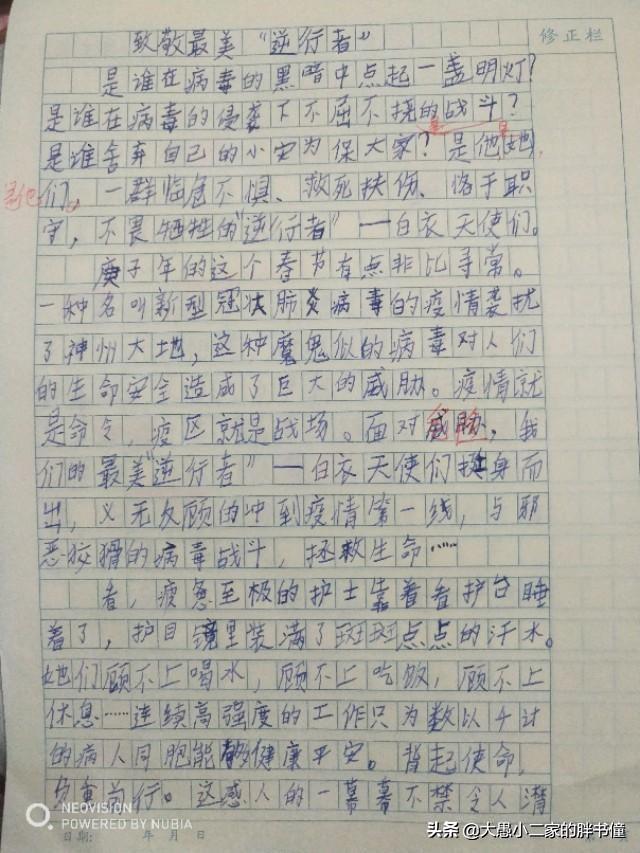 致敬最美“逆行者”
修正栏
是谁在病毒的黑暗中点起一盏明灯?
是谁在病毒的侵袭下不屈不挠的战斗?
是谁舍弃自己的小安为保大家?是他她
是他
们,一群临危不惧、救死扶伤、恪于职
守,不畏牺牲的“逆行者”—白衣天使们。
庚子年的这个春节有点非比寻常。
一种名叫新型冠状肺炎病毒的疫情袭扰
了神州大地,这种魔鬼似的病毒对人们
的生命安全造成了巨大的威胁。疫情就
是命令,疫区就是战场。面对威胁,我
们的最美“逆行者”—白衣天使们挺身而
出,义无反顾的冲到疫情第一线,与邪
恶狡猾的病毒战斗,拯救生命……
看,疲惫至极的护士靠着看护台睡
着了,护目镜里装满了斑斑点点的汗水。
她们顾不上喝水,顾不上吃饭,顾不上
休息……连续高强度的工作只为数以千计
的病人同胞能够健康平安。背起使命,
负重前行。这感人的一幕幕不禁令人潸
NEOVISION
POWERED BY NUBIA
日期: 年 月 日
头条 @大愚小二家的胖书僮